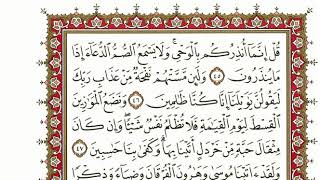 قُلْ إِنَّمَآ أُنذِرُكُم بِٱلْوَحْىِ ۚ وَلَا يَسْمَعُ ٱلصُّمُّ ٱلدُّعَآءَ إِذَا
مَا يُنذَرُونَ ٤٥ وَلَئِن مَّسَّتْهُمْ نَفْحَةٌ مِّنْ عَذَابِ رَبِّكَ
لَيَقُولُنَّ يَٰوَيْلَنَآ إِنَّا كُنَّا ظَٰلِمِينَ ٤٦ وَنَضَعُ ٱلْمَوَٰزِينَ
ٱلْقِسْطَ لِيَوْمِ ٱلْقِيَٰمَةِ فَلَا تُظْلَمُ نَفْسٌ شَيْـًٔا ۖ وَإِن كَانَ
مِثْقَالَ حَبَّةٍ مِّنْ خَرْدَلٍ أَتَيْنَا بِهَا ۗ وَكَفَىٰ بِنَا حَٰسِبِينَ ٤٧
وَلَقَدْ ءَاتَيْنَا مُوسَىٰ وَهَٰرُونَ ٱلْفُرْقَانَ وَضِيَآءً وَذِكْرًا